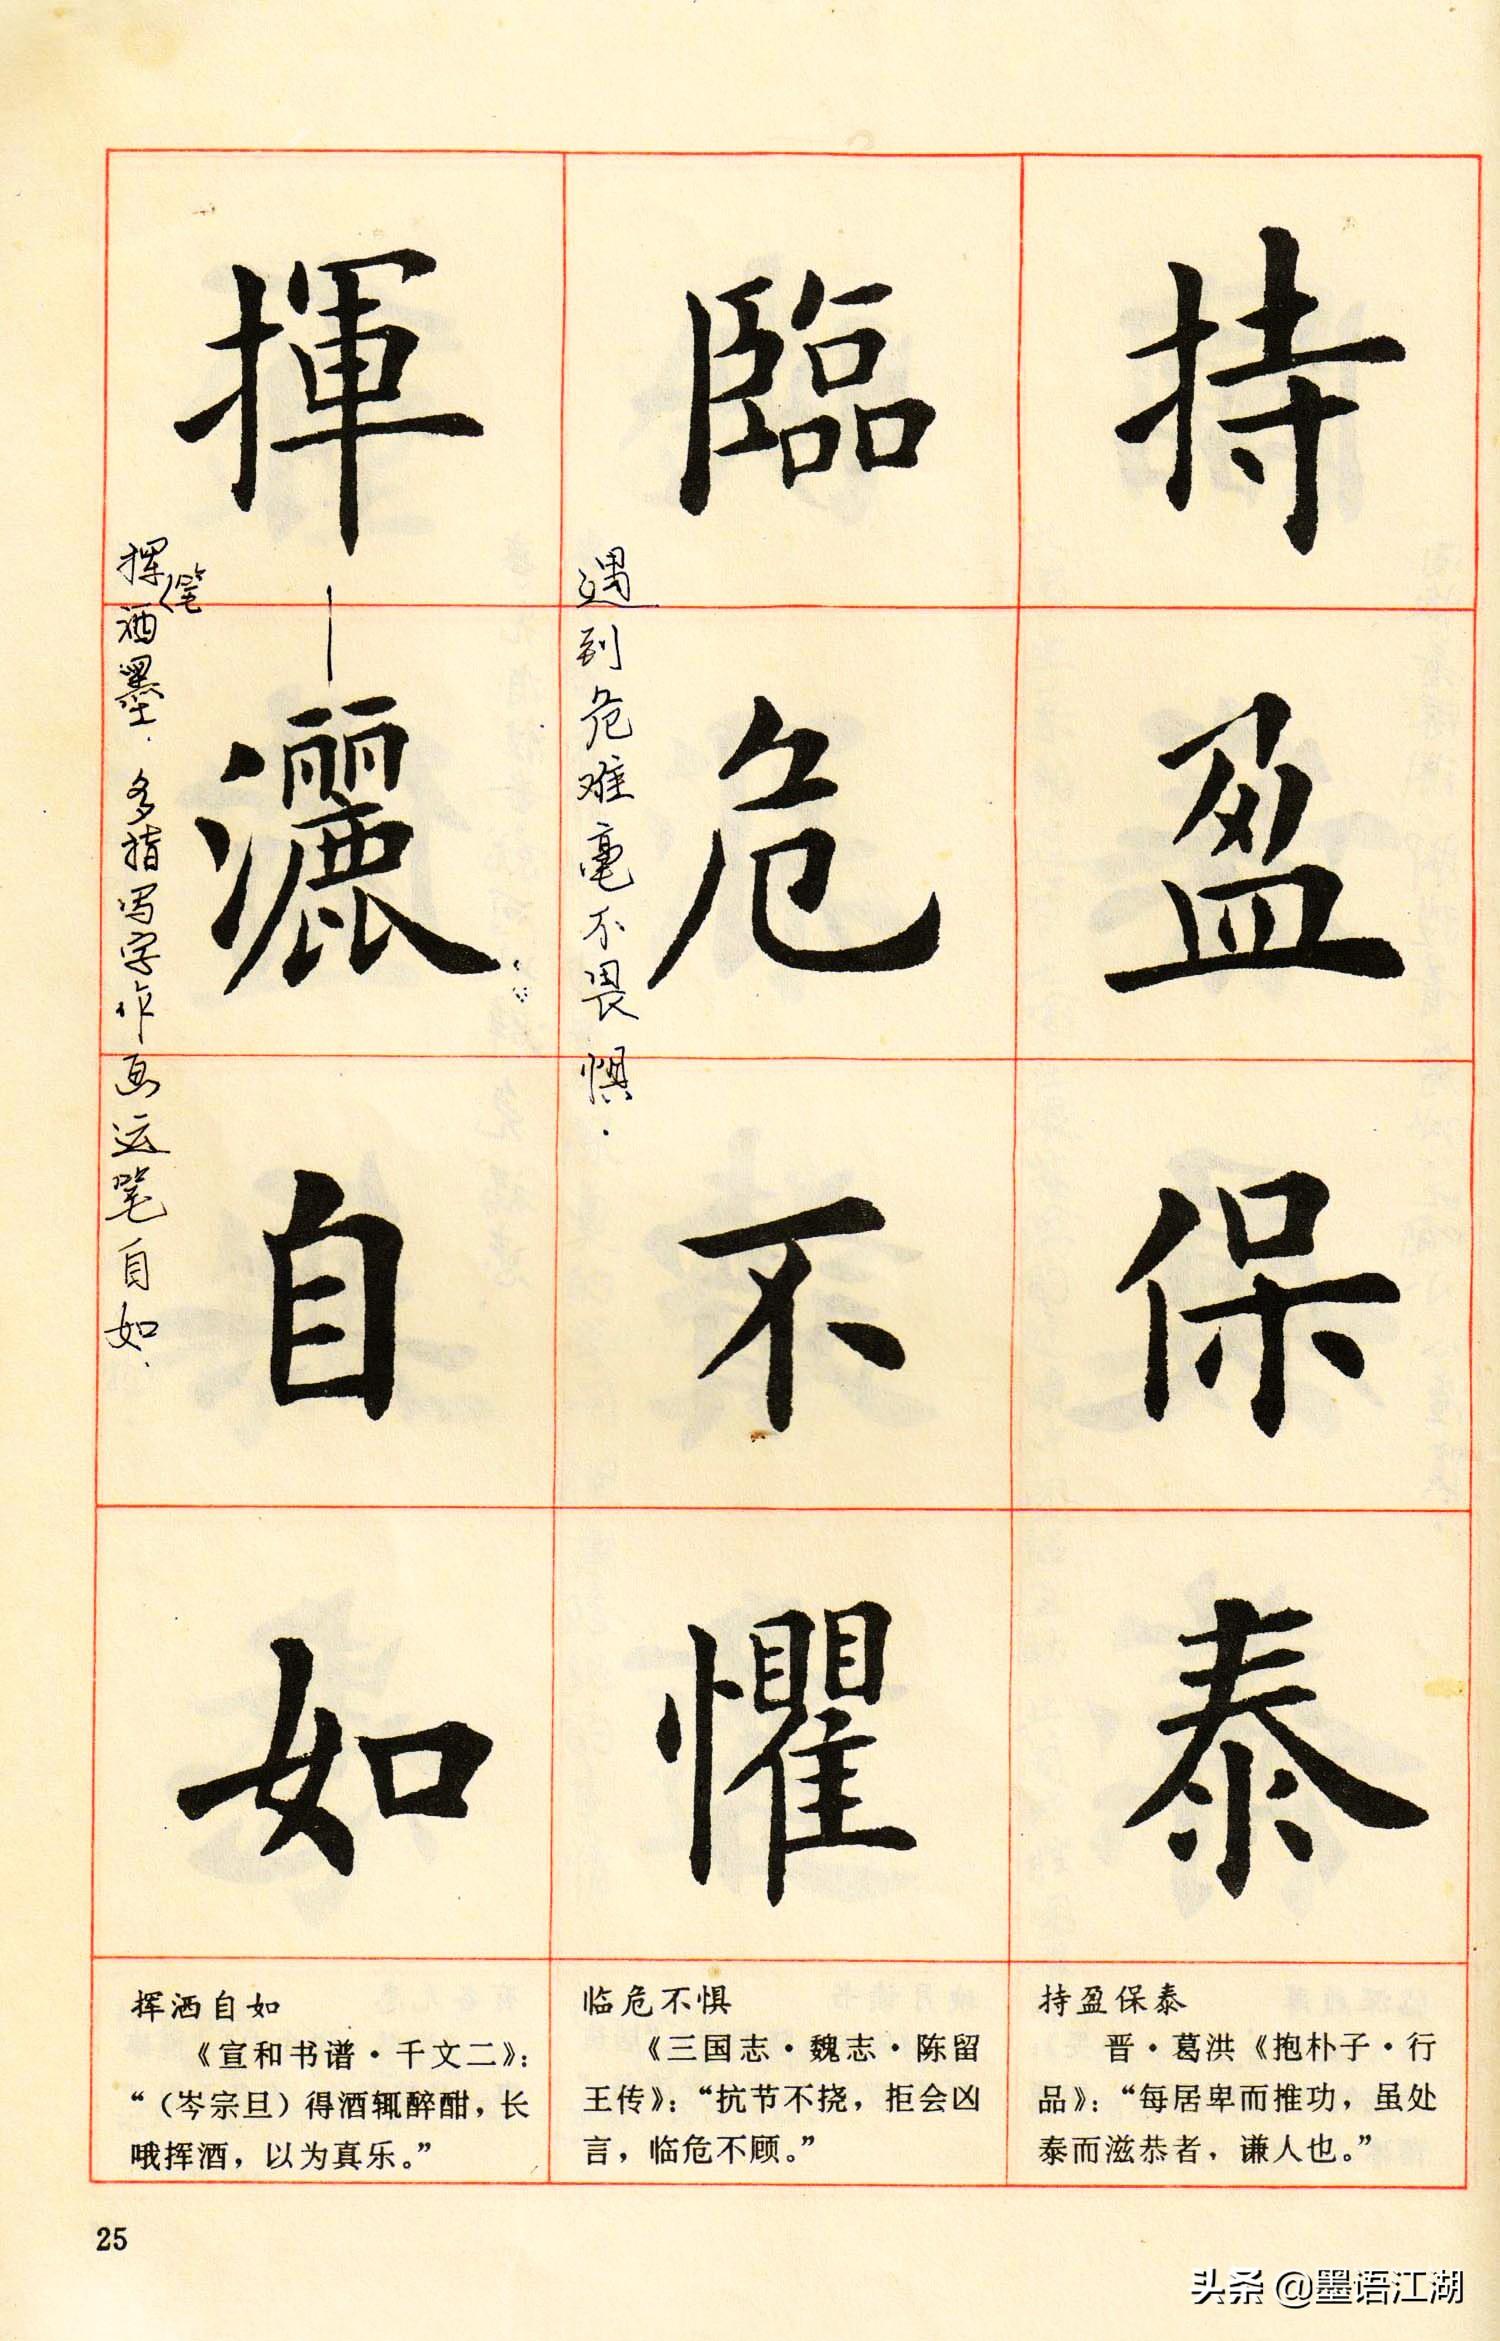 持盈保泰
臨危不懼
遇到危难毫不畏惧.
揮灑自如
挥笔洒墨.多指写字作画运笔自如.
持盈保泰
晋·葛洪《抱朴子·行
品》：“每居卑而推功，虽处
泰而滋恭者，谦人也。”
临危不惧
《三国志·魏志·陈留
王传》：“抗节不挠，拒会凶
言，临危不顾。”
挥洒自如
《宣和书谱·千文二》：
“（岑宗旦）得酒辄醉酣，长
哦挥洒，以为真乐。”
25
头条 @墨语江湖